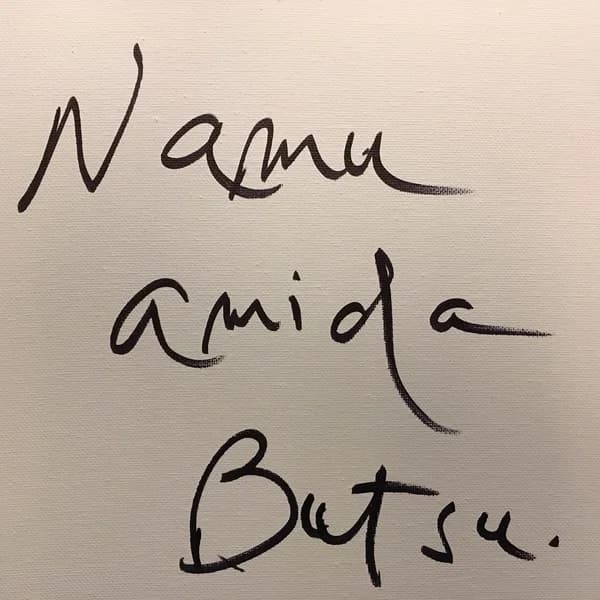 Namu
amida
Butsu.